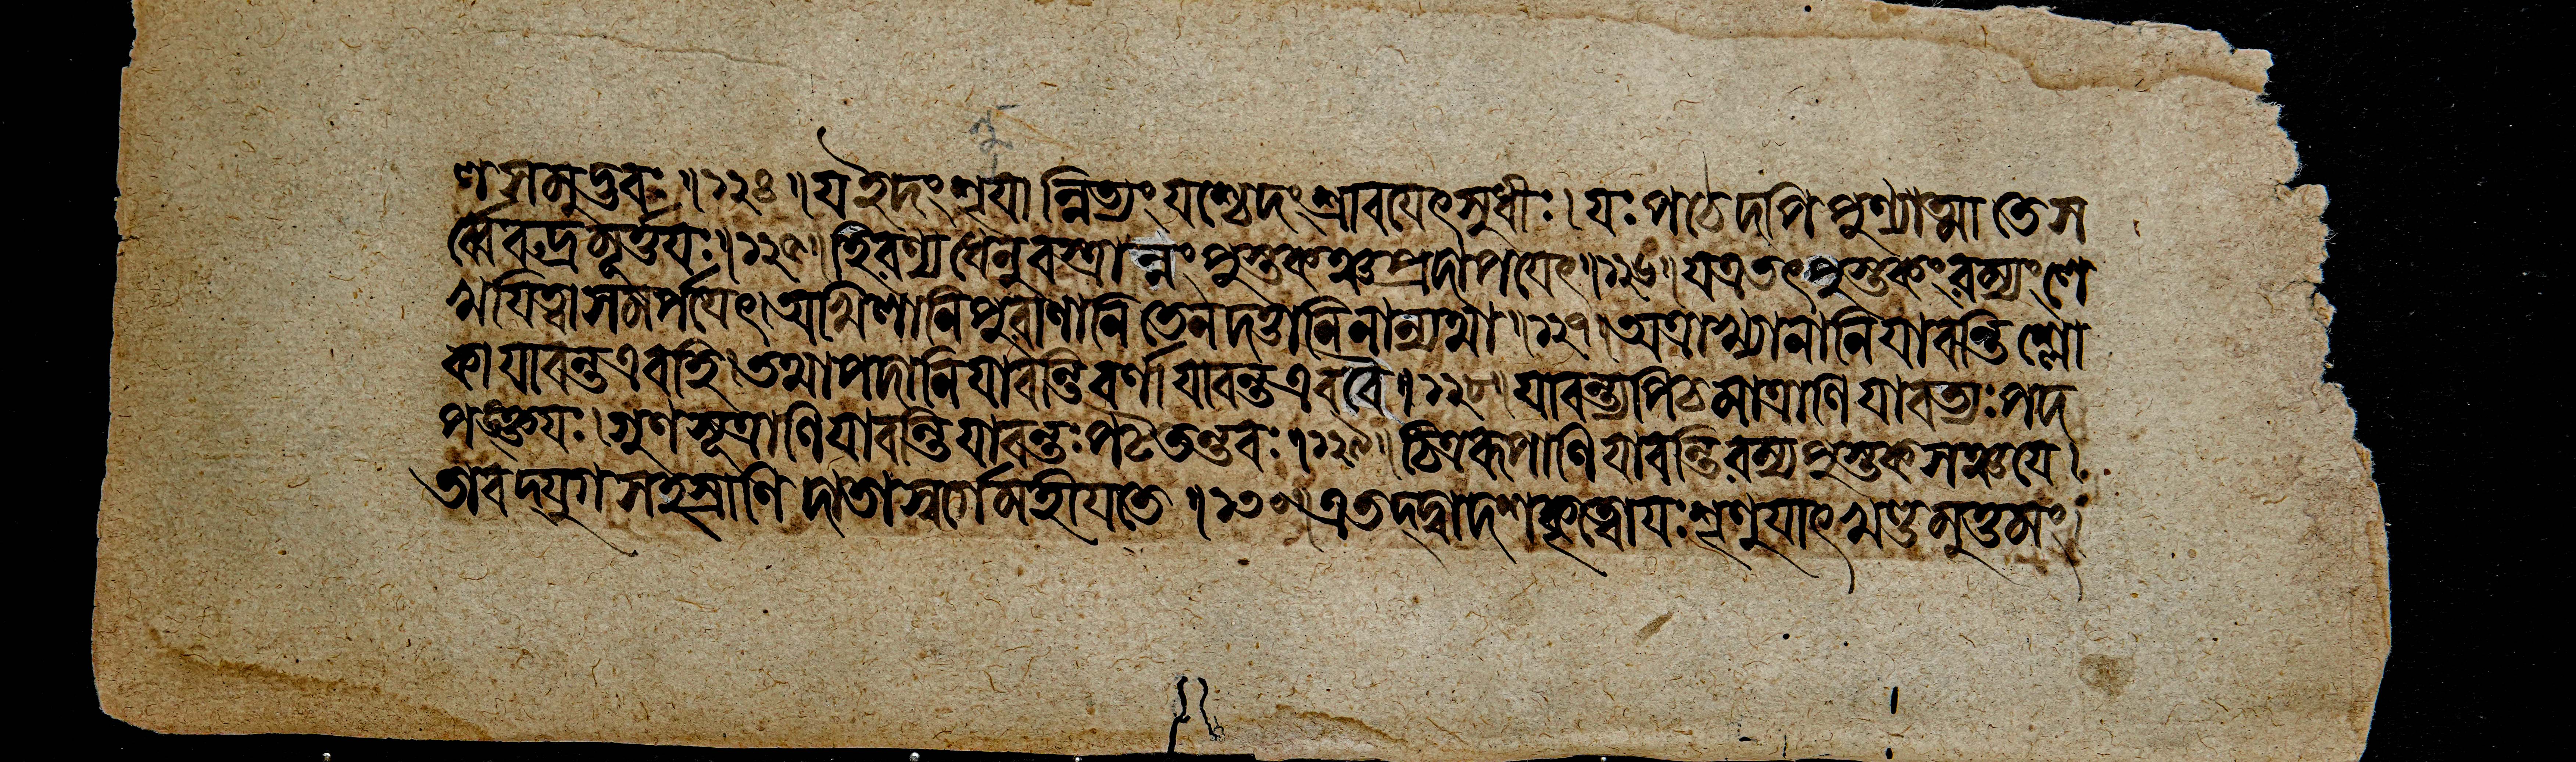 ণু
ণসমুদ্ভবঃ ॥১২৪॥ য ইদং শৃযান্নিত্যং যশ্চেদং শ্রাবযেৎ সুধীঃ । যঃ পঠেদপি পুণ্যাত্মা তে স
র্ব্বে রুদ্রমূর্ত্তযঃ ॥১২৫॥ হিরণ্যধেনুবস্ত্রান্নং পুস্তকঞ্চ প্রদাপযেৎ ॥১২৬॥ য এতৎপুস্তকং রম্যং লে
খযিত্বা সমর্পযেৎ । অখিলানি পুরাণানি তেন দত্তানি নান্যথা ॥১২৭॥ অত্রাখ্যানানি যাবন্তি শ্লো
কা যাবন্ত এব হি । তথা পদানি যাবন্তি বর্ণা যাবন্ত এব বৈ ॥১২৮॥ যাবন্ত্যপি চ মাত্রাণি যাবত্যঃ পদ
পঙ্ক্তযঃ । গুণসূত্রাণি যাবন্তি যাবন্তঃ পটতন্তবঃ ॥১২৯॥ চিত্ররূপাণি যাবন্তি রম্যপুস্তকসঞ্চযে ।
তাবদ্যুগসহস্রাণি দাতা স্বর্গে মহীযতে ॥১৩০॥ এতদ্দ্বাদশকৃত্বো যঃ শৃণুযাৎ খণ্ডমুত্তমং ।